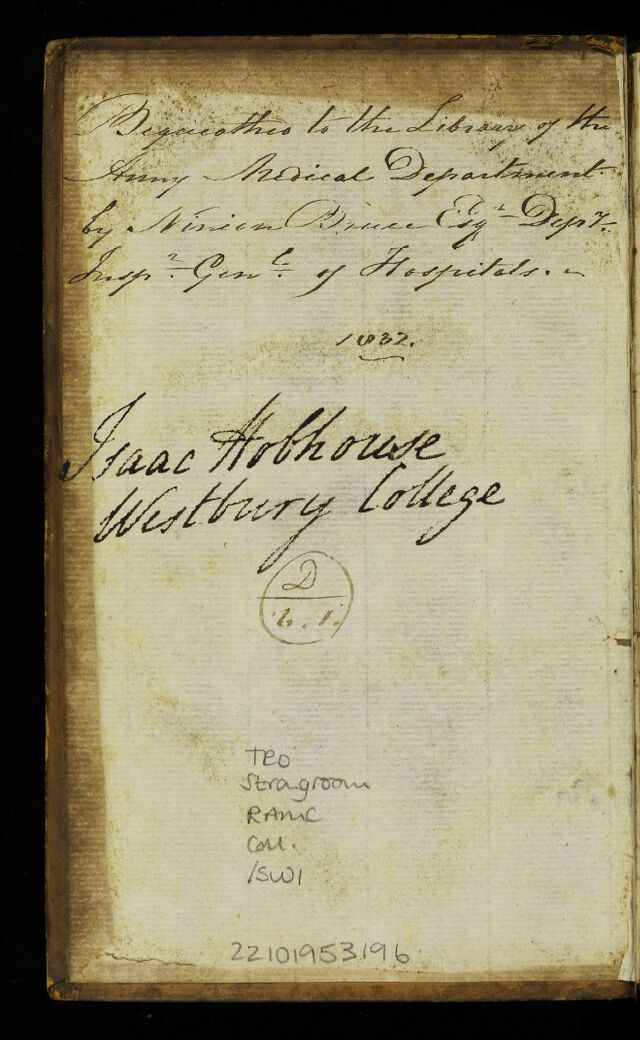 Bequeathed to the Library of the
Army Medical Department
by Ninian Bruce Esqr. Depy.
Inspr. Genl. of Hospitals.
1832.
Isaac Hobhouse
Westbury College
D
2. 1.
TRO
Strongroom
RAMC
Coll.
/SWI
22101953196